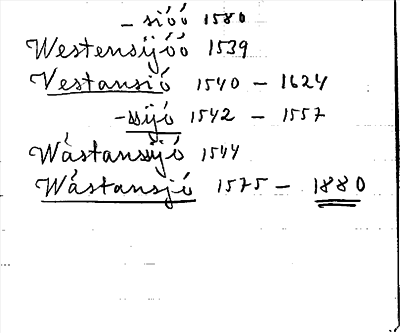 - sióó 1580
Westensijóó 1539
Vestansió 1540 - 1624
- ssijó 1542 - 1557
Wástanssjó 1544
Wástansjó 1575 - 1880